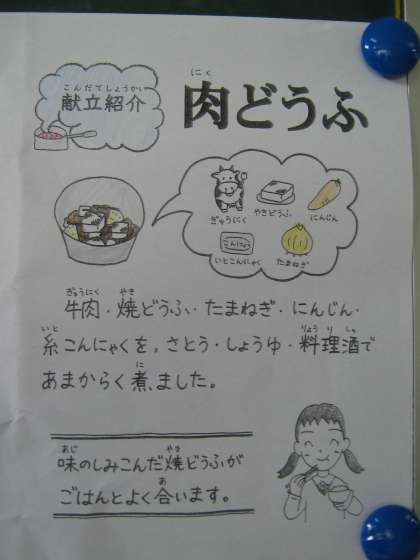 こんだてしょうかい
献立紹介
にく
肉どうふ
ぎゅうにく
やきどうふ
にんじん
こんにゃく
いとこんにゃく
たまねぎ
ぎゅうにく やき
牛肉・焼どうふ・たまねぎ・にんじん・
いと りょうりしゅ
糸こんにゃくを,さとう・しょうゆ・料理酒で
に
あまからく煮ました。
あじ やき
味のしみこんだ焼どうふが
あ
ごはんとよく合います。